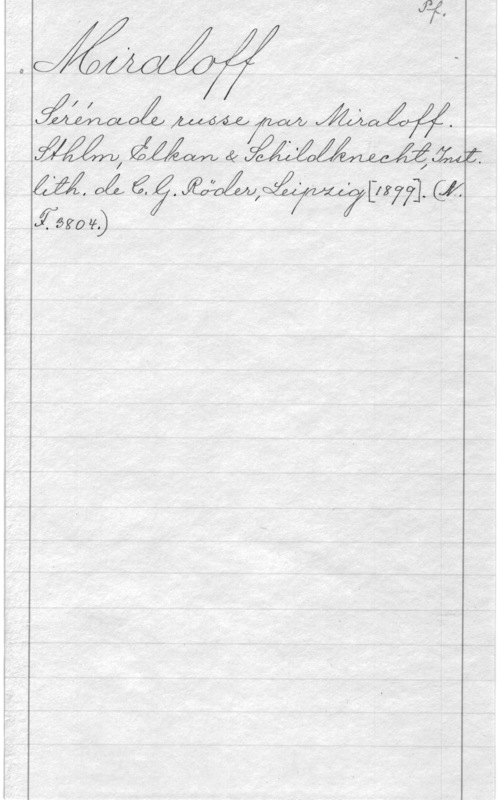 Pf.
Miraloff
Sérénade russe par Miraloff.
Sthlm, Elkan & Schildknecht, Inst.
lith. de C. G. Röder, Leipzig [1899]. (N.
F. 3804.)